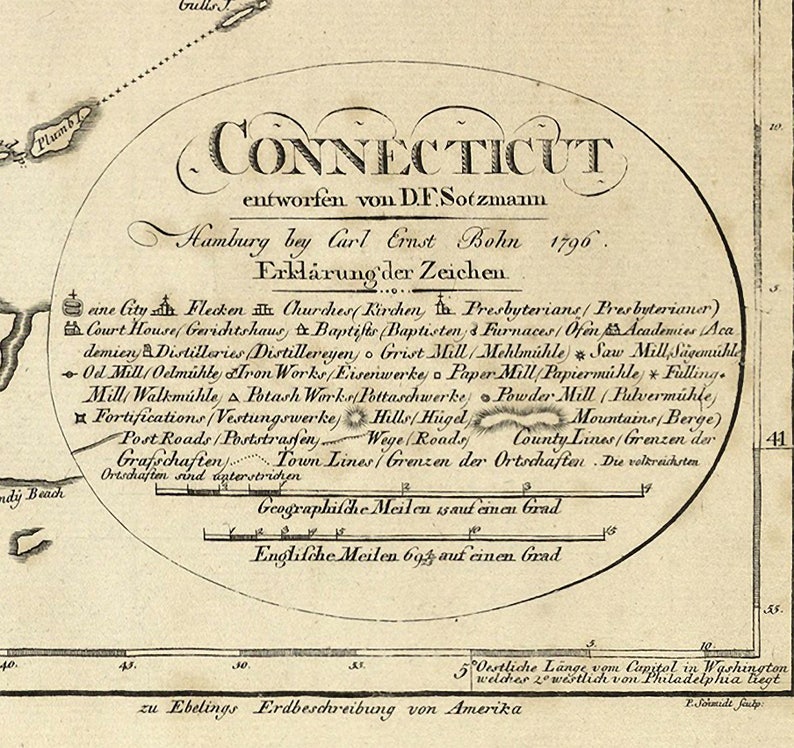 Gulls I.
Plumb I.
CONNECTICUT
entworfen von D.F. Sotzmann
Hamburg bey Carl Ernst Bohn 1796.
Erklärung der Zeichen
eine City Flecken Churches (Kirchen) Presbyterians (Presbyterianer)
Court House (Gerichtshaus) Baptists (Baptisten) Furnaces (Öfen) Academies (Aca
demien) Distilleries (Distillereyen) Grist Mill (Mehlmühle) Saw Mill (Sägemühle
Oel Mill (Oelmühle) Iron Works (Eisenwerke) Paper Mill (Papiermühle) Fulling
Mill (Walkmühle) Potash Works (Pottaschwerke) Powder Mill (Pulvermühle)
Fortifications (Vestungswerke) Hills (Hügel) Mountains (Berge)
Post Roads (Poststrassen) Wege (Roads) County Lines (Grenzen der
Grafschaften) Town Lines (Grenzen der Ortschaften. Die volkreichsten
Ortschaften sind unterstrichen
1 2 3 4
Geographische Meilen 15 auf einen Grad
1 2 3 4 5 10 15
Englische Meilen 69 4/5 auf einen Grad
ndy Beach
10.
5.
41
55.
40. 45. 50. 55. 5° 5. 10.
Oestliche Länge vom Capitol in Washington
welches 2° westlich von Philadelphia liegt
zu Ebelings Erdbeschreibung von Amerika
P. Schmidt sculp: